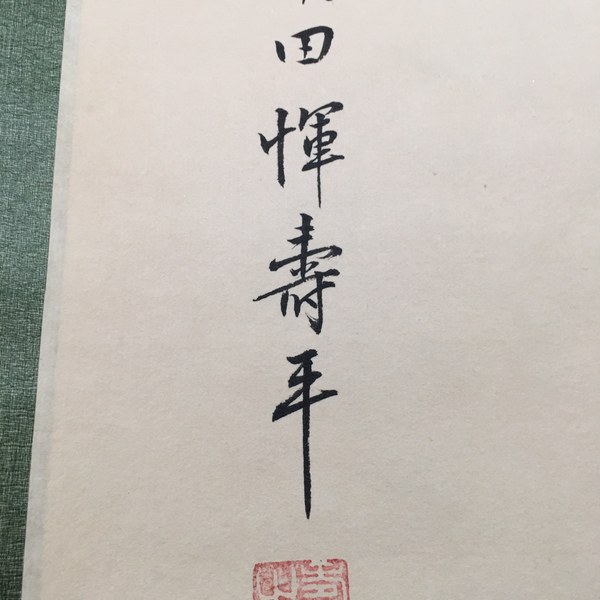 田惲壽平